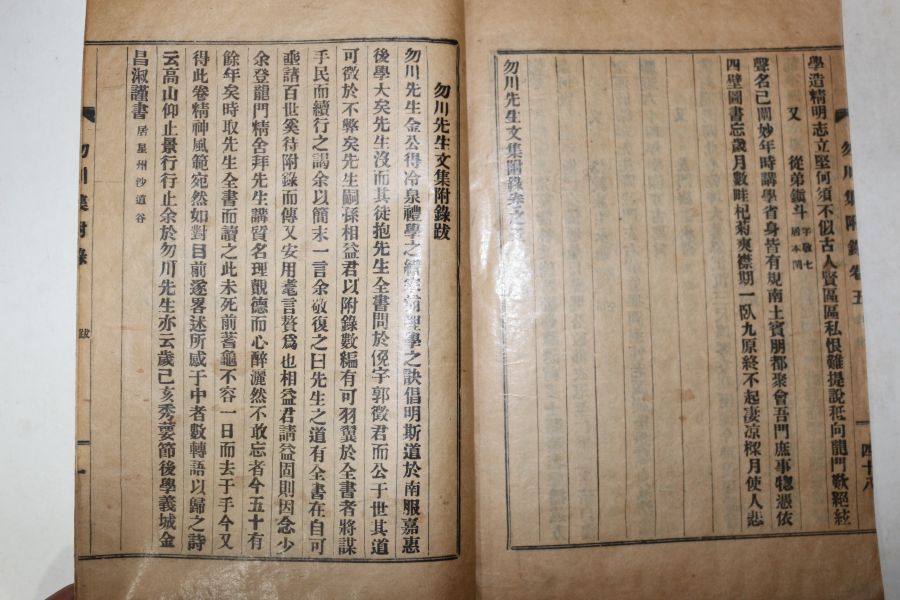 學造精明志立堅何須不似古人賢區區私恨難提說秪向龍門歌絕絃
又 從弟鎭斗 字敬七 居本閣
聲名已闡妙年時講學省身皆有規南土賓朋都聚會吾門庶事惣憑依
四壁圖書忘歲月數畦杞菊爽襟期一臥九原終不起凄凉樑月使人悲
勿川先生文集附錄卷之
勿川集附錄 卷五 四十八
勿川先生文集附錄跋
勿川先生金公得冷泉禮學之 之訣倡明斯道於南服嘉惠
後學大矣先生沒而其徒抱先生全書問於俛宇郭徵君而公于世其道
可徵於不弊矣先生嗣孫相益君以附錄數編有可羽翼於全書者將謀
手民而續行之謁余以簡末一言余敬復之曰先生之道有全書在自可
垂諸百世奚待附錄而傳又安用耄言贅爲也相益君請益固則因念少
余登龍門精舍拜先生講質名理觀德而心醉灑然不敢忘者今五十有
餘年矣時取先生全書而讀之此未死前蓍龜不容一日而去于手今又
得此卷精神風範宛然如對目前遂畧述所感于中者數轉語以歸之詩
云高山仰止景行行止余於勿川先生亦云歲己亥秀葽節後學義城金
昌淑謹書 居星州沙道谷
勿川集附錄 跋 一